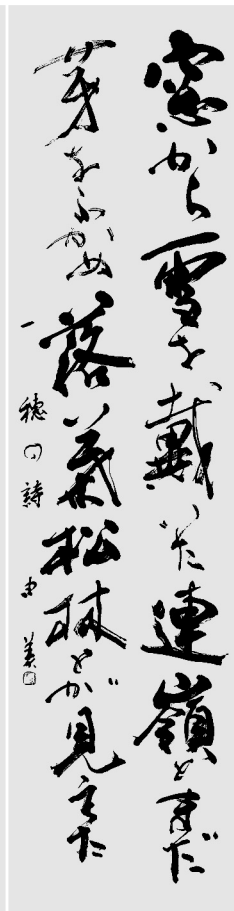 窓から雪を戴いた連嶺とまだ
芽をふかぬ落葉松林とが見えた
一穂の詩 忠義